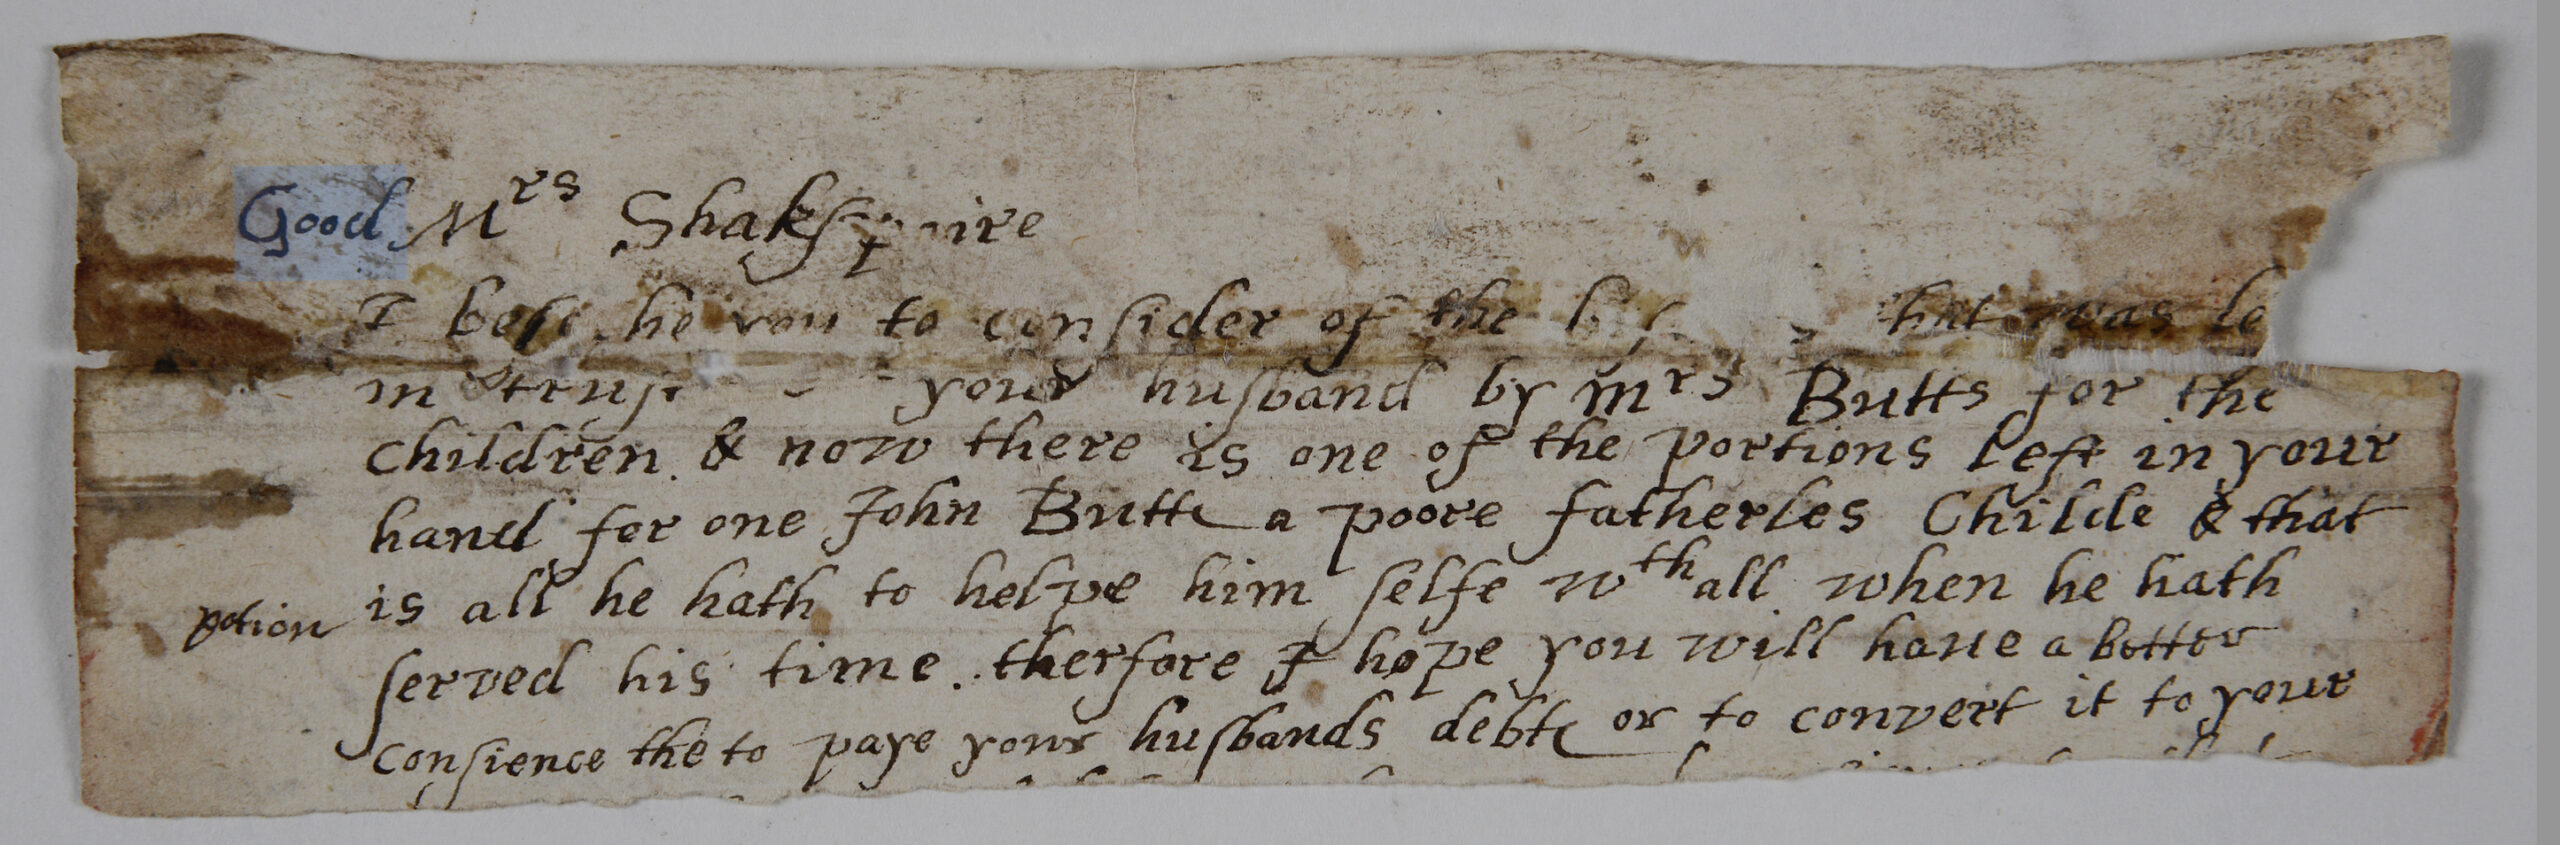 Good Mrs Shakspaire
I beseche you to consider of the that was le
in trust your husband by Mrs Butts for the
children & now there is one of the portions left in your
hand for one John Butts a poore fatherles Childe & that
is all he hath to helpe him selfe wth all when he hath
potion
served his time therfore I hope you will haue a better
Consience the to paye your husbands debts or to convert it to your